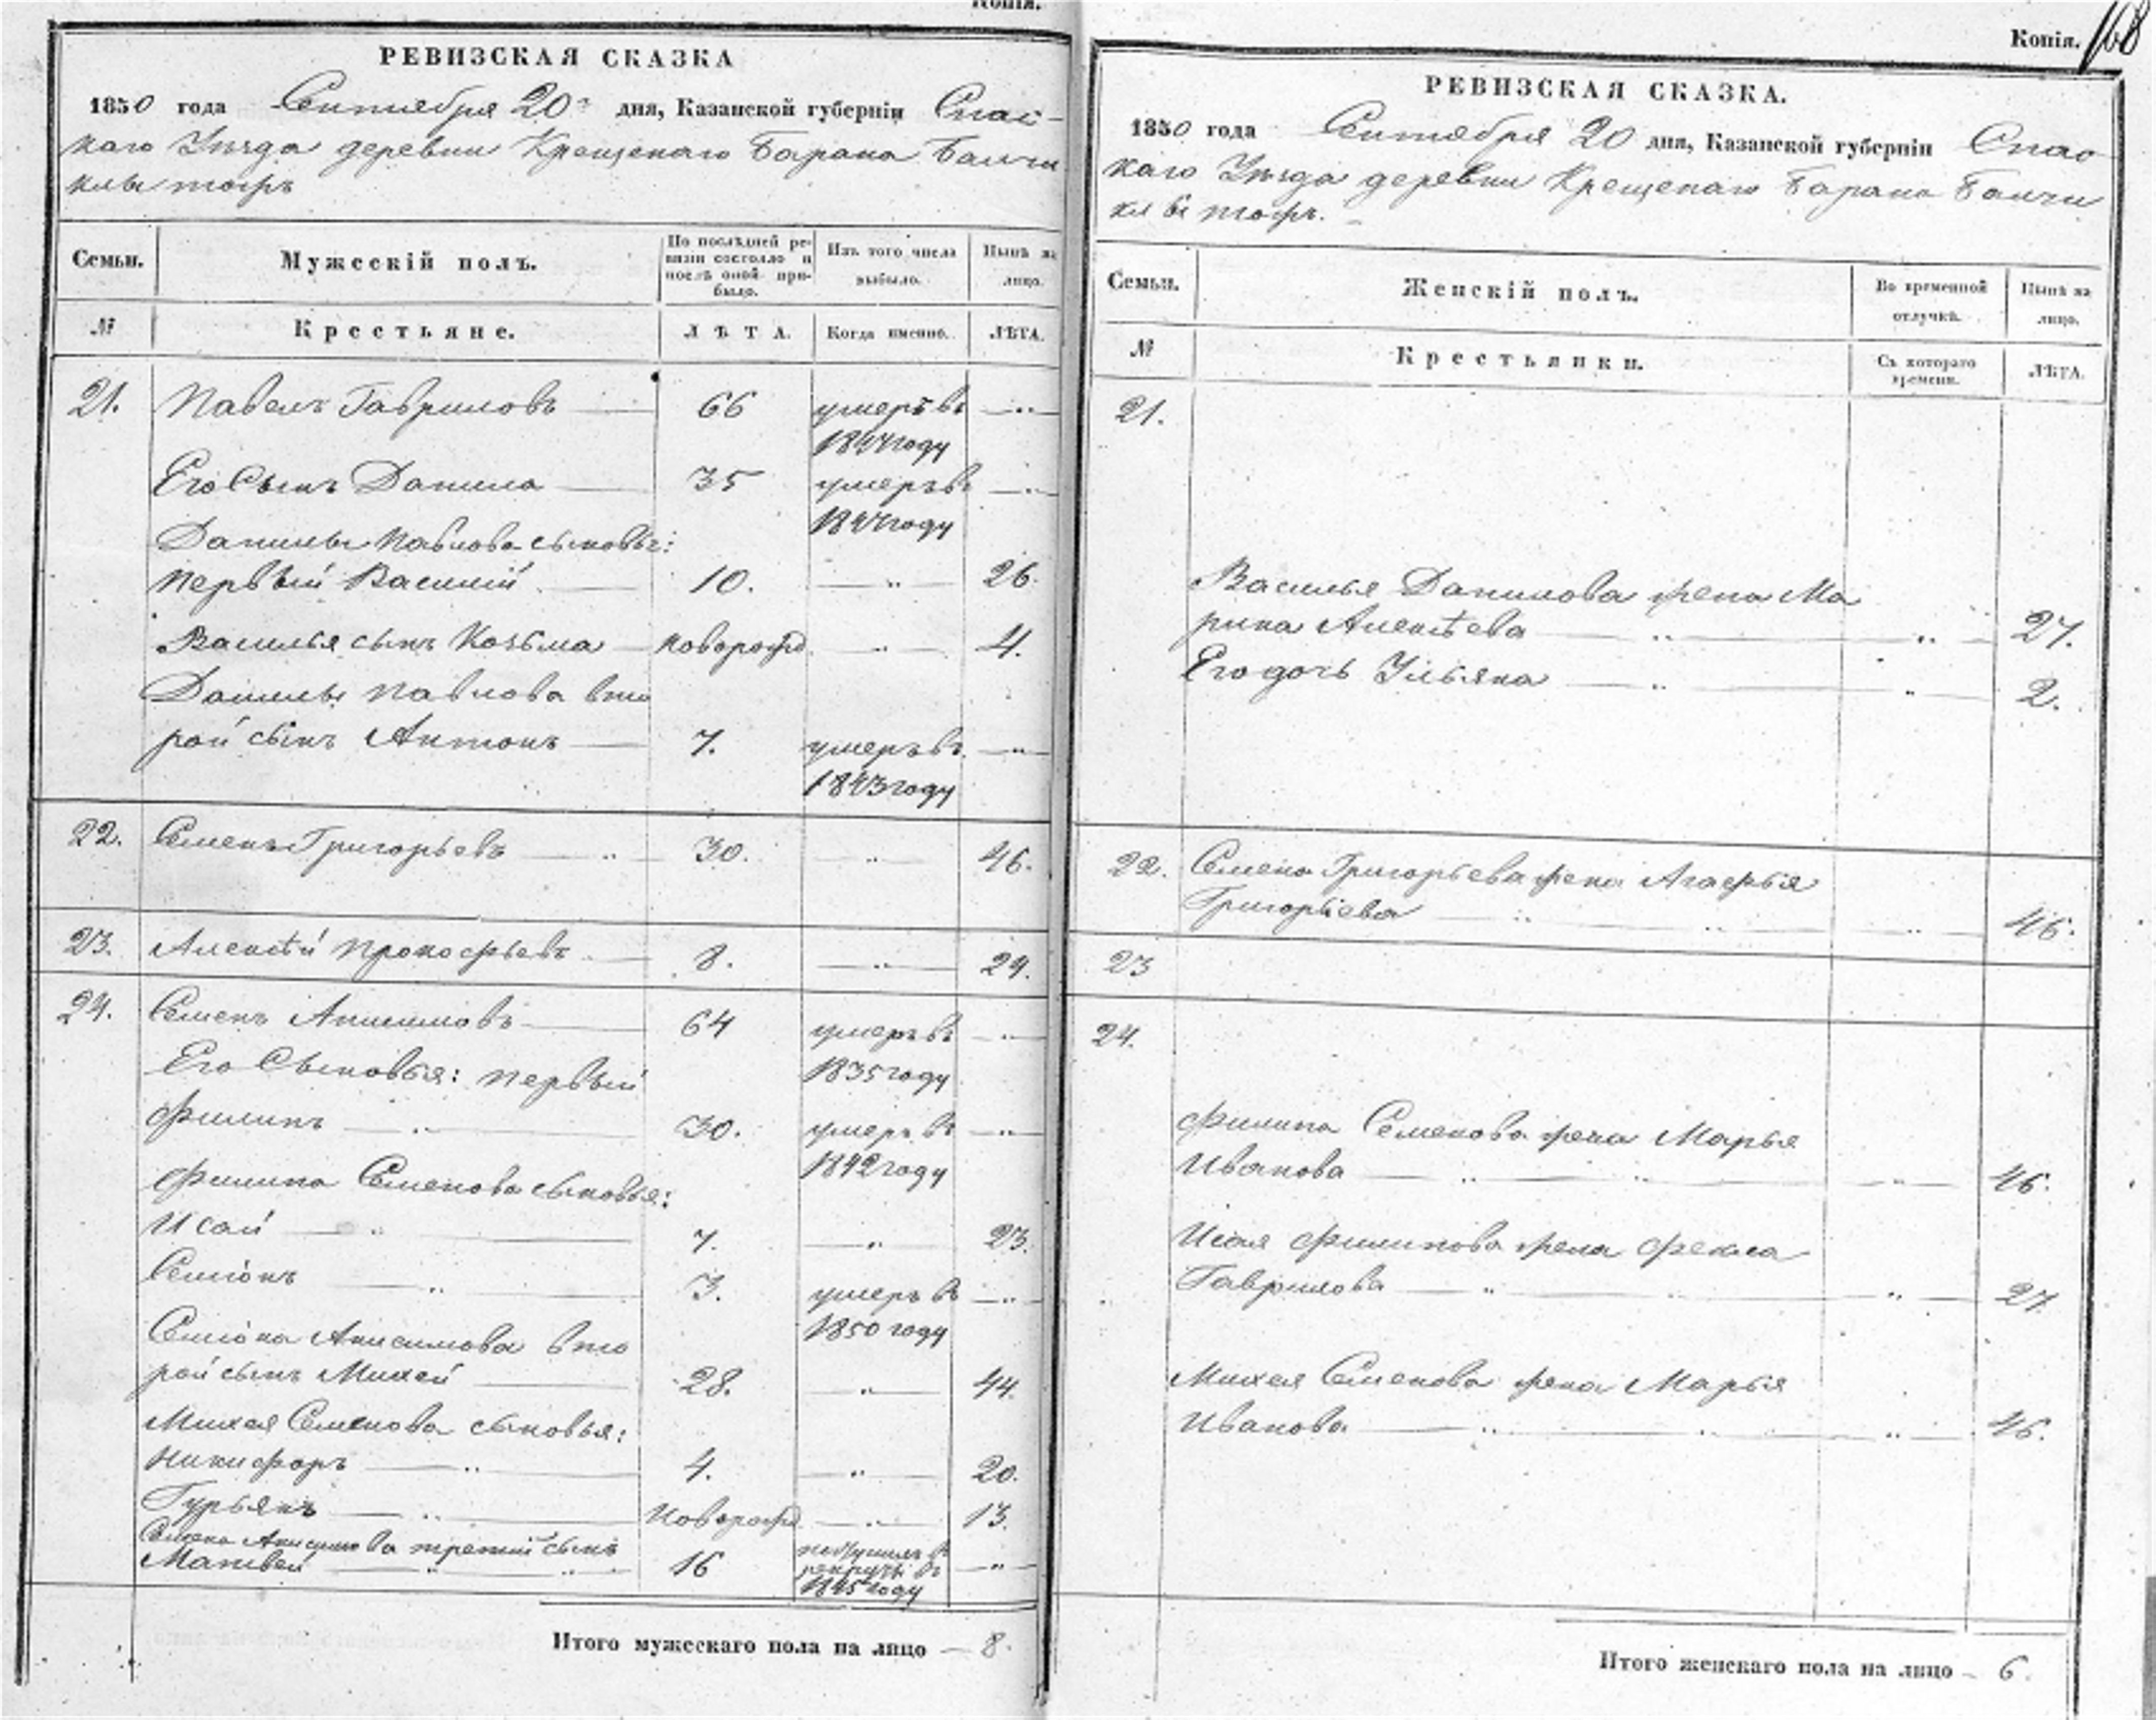 Копія.
РЕВИЗСКАЯ СКАЗКА
1850 года Сентября 20 дня, Казанской губерніи Спас-
каго Уѣзда деревни Крещенаго Барана
тожъ
Семьи. Мужескій полъ. По послѣдней ревизіи состояло и послѣ оной прибыло. Изъ того числа выбыло. Нынѣ на лицо.
№ Крестьяне. ЛѢТА. Когда именно. ЛѢТА.
21. Павелъ Гавриловъ 66 умеръ въ
1844 году
Его Сынъ Данила 35 умеръ въ
1844 году
Данилы Павлова сыновья:
первый Василий 10. 26.
Василья сынъ Козьма новорожд 4.
Данилы Павлова вто
рой сынъ Антонъ 7. умеръ въ
1843 году
22. Семенъ Григорьевъ 30. 46.
23. Алексѣй Прокофьевъ 8. 24.
24. Семенъ Анисимовъ 64 умеръ въ
1835 году
Его Сыновья: первый
Филипъ 30. умеръ въ
1842 году
Филипа Семенова сыновья:
Исай 7. 23.
Семіонъ 3. умеръ въ
1850 году
Семіона Анисимова вто
рой сынъ Михей 28. 44.
Михея Семенова сыновья:
Никифоръ 4. 20.
Гурьянъ Новорожд 13.
Семена Анисимова третий сынъ
Матвей 16 поступилъ въ
рекруты въ
1845 году
Итого мужескаго пола на лицо 8.
Копія. 168
РЕВИЗСКАЯ СКАЗКА.
1850 года Сентября 20 дня, Казанской губерніи Спас
каго Уѣзда деревни Крещенаго Барана
тожъ.
Семьи. Женскій полъ. Во временной отлучкѣ. Нынѣ на лицо.
№ Крестьянки. Съ котораго времени. ЛѢТА.
21.
Василья Данилова жена Ма
рина Алексѣева 27.
Его дочь Ульяна 2.
22. Семена Григорьева жена Агафья
Григорьева 46.
23
24.
Филипа Семенова жена Марья
Иванова 46.
Исая Филипова жена Фекла
Гаврилова 27
Михея Семенова жена Марья
Иванова 46.
Итого женскаго пола на лицо 6.